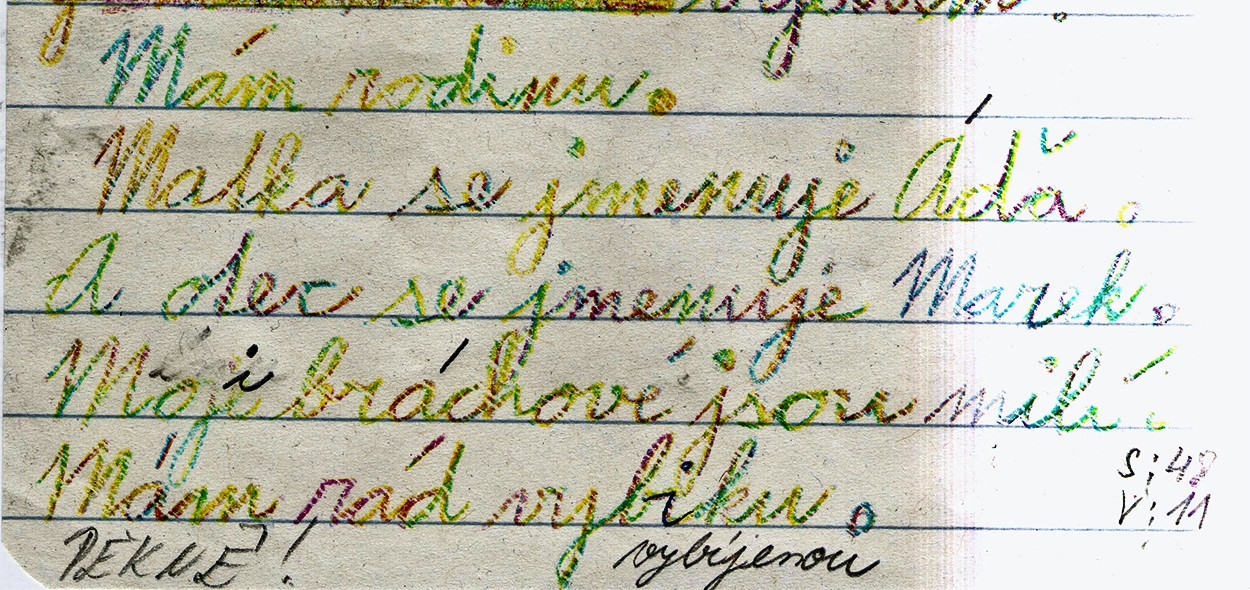 Mám rodinu.
Matka se jmenuje Áďa.
A otec se jmenuje Marek.
Moji bráchové jsou milí.
Mám rád vybiku.
S:48
V:11
PĚKNĚ!
vybíjenou